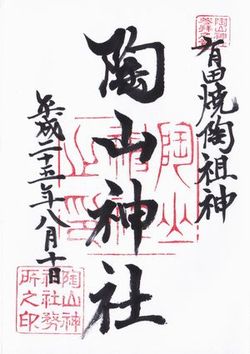 有田焼陶祖神
陶山神社
平成二十五年八月十日
陶山神
社社務
所之印